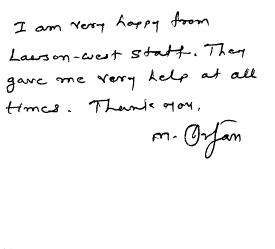 I am very happy from
Lawson-west staff. They
gave me very help at all
times. Thank you.
M. Orfan